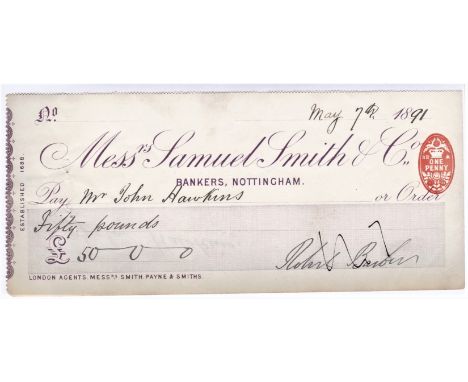 No.
May 7th 1891
Messrs Samuel Smith & Co.
BANKERS, NOTTINGHAM.
ESTABLISHED 1688.
ONE PENNY
Pay Mr John Hawkins or Order
Fifty pounds
£ 50 0 0
LONDON AGENTS, MESSRS SMITH, PAYNE & SMITHS.